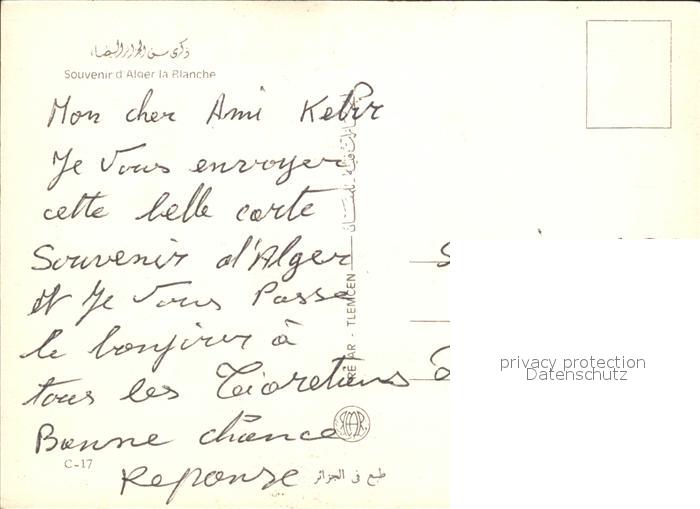 ذكرى من الجزائر البيضاء
Souvenir d'Alger la Blanche
Mon cher Ami Kebir
Je vous envoyer
cette belle carte
Souvenir d'Alger
et Je vous Passe
le bonjour à
tous les Tiaretiens
Bonne chance
Reponse
C-17
طبع في الجزائر
TLEMCEN
privacy protection
Datenschutz